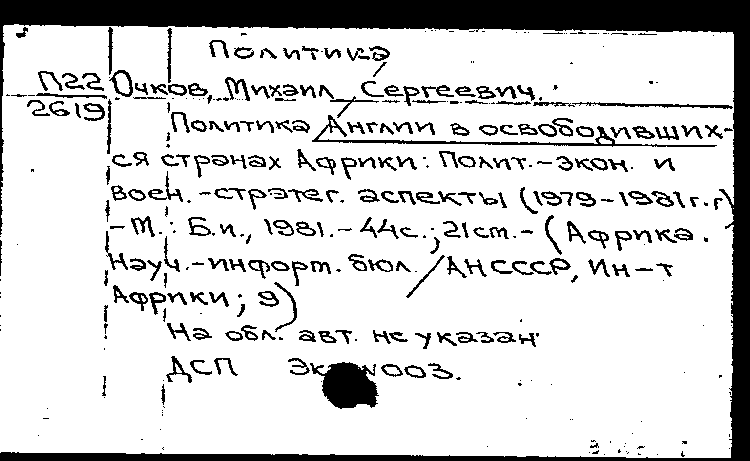 Политика
П22 Очков, Михаил Сергеевич.
2619
Политика Англии в освободивших-
ся странах Африки: Полит.-экон. и
воен.-стратег. аспекты (1979-1981г.г)
-М.: Б.и., 1981.-44с.; 21см.-(Африка.
Науч.-информ. бюл. / АН СССР, Ин-т
Африки; 9)
На обл. авт. не указан.
ДСП 003.